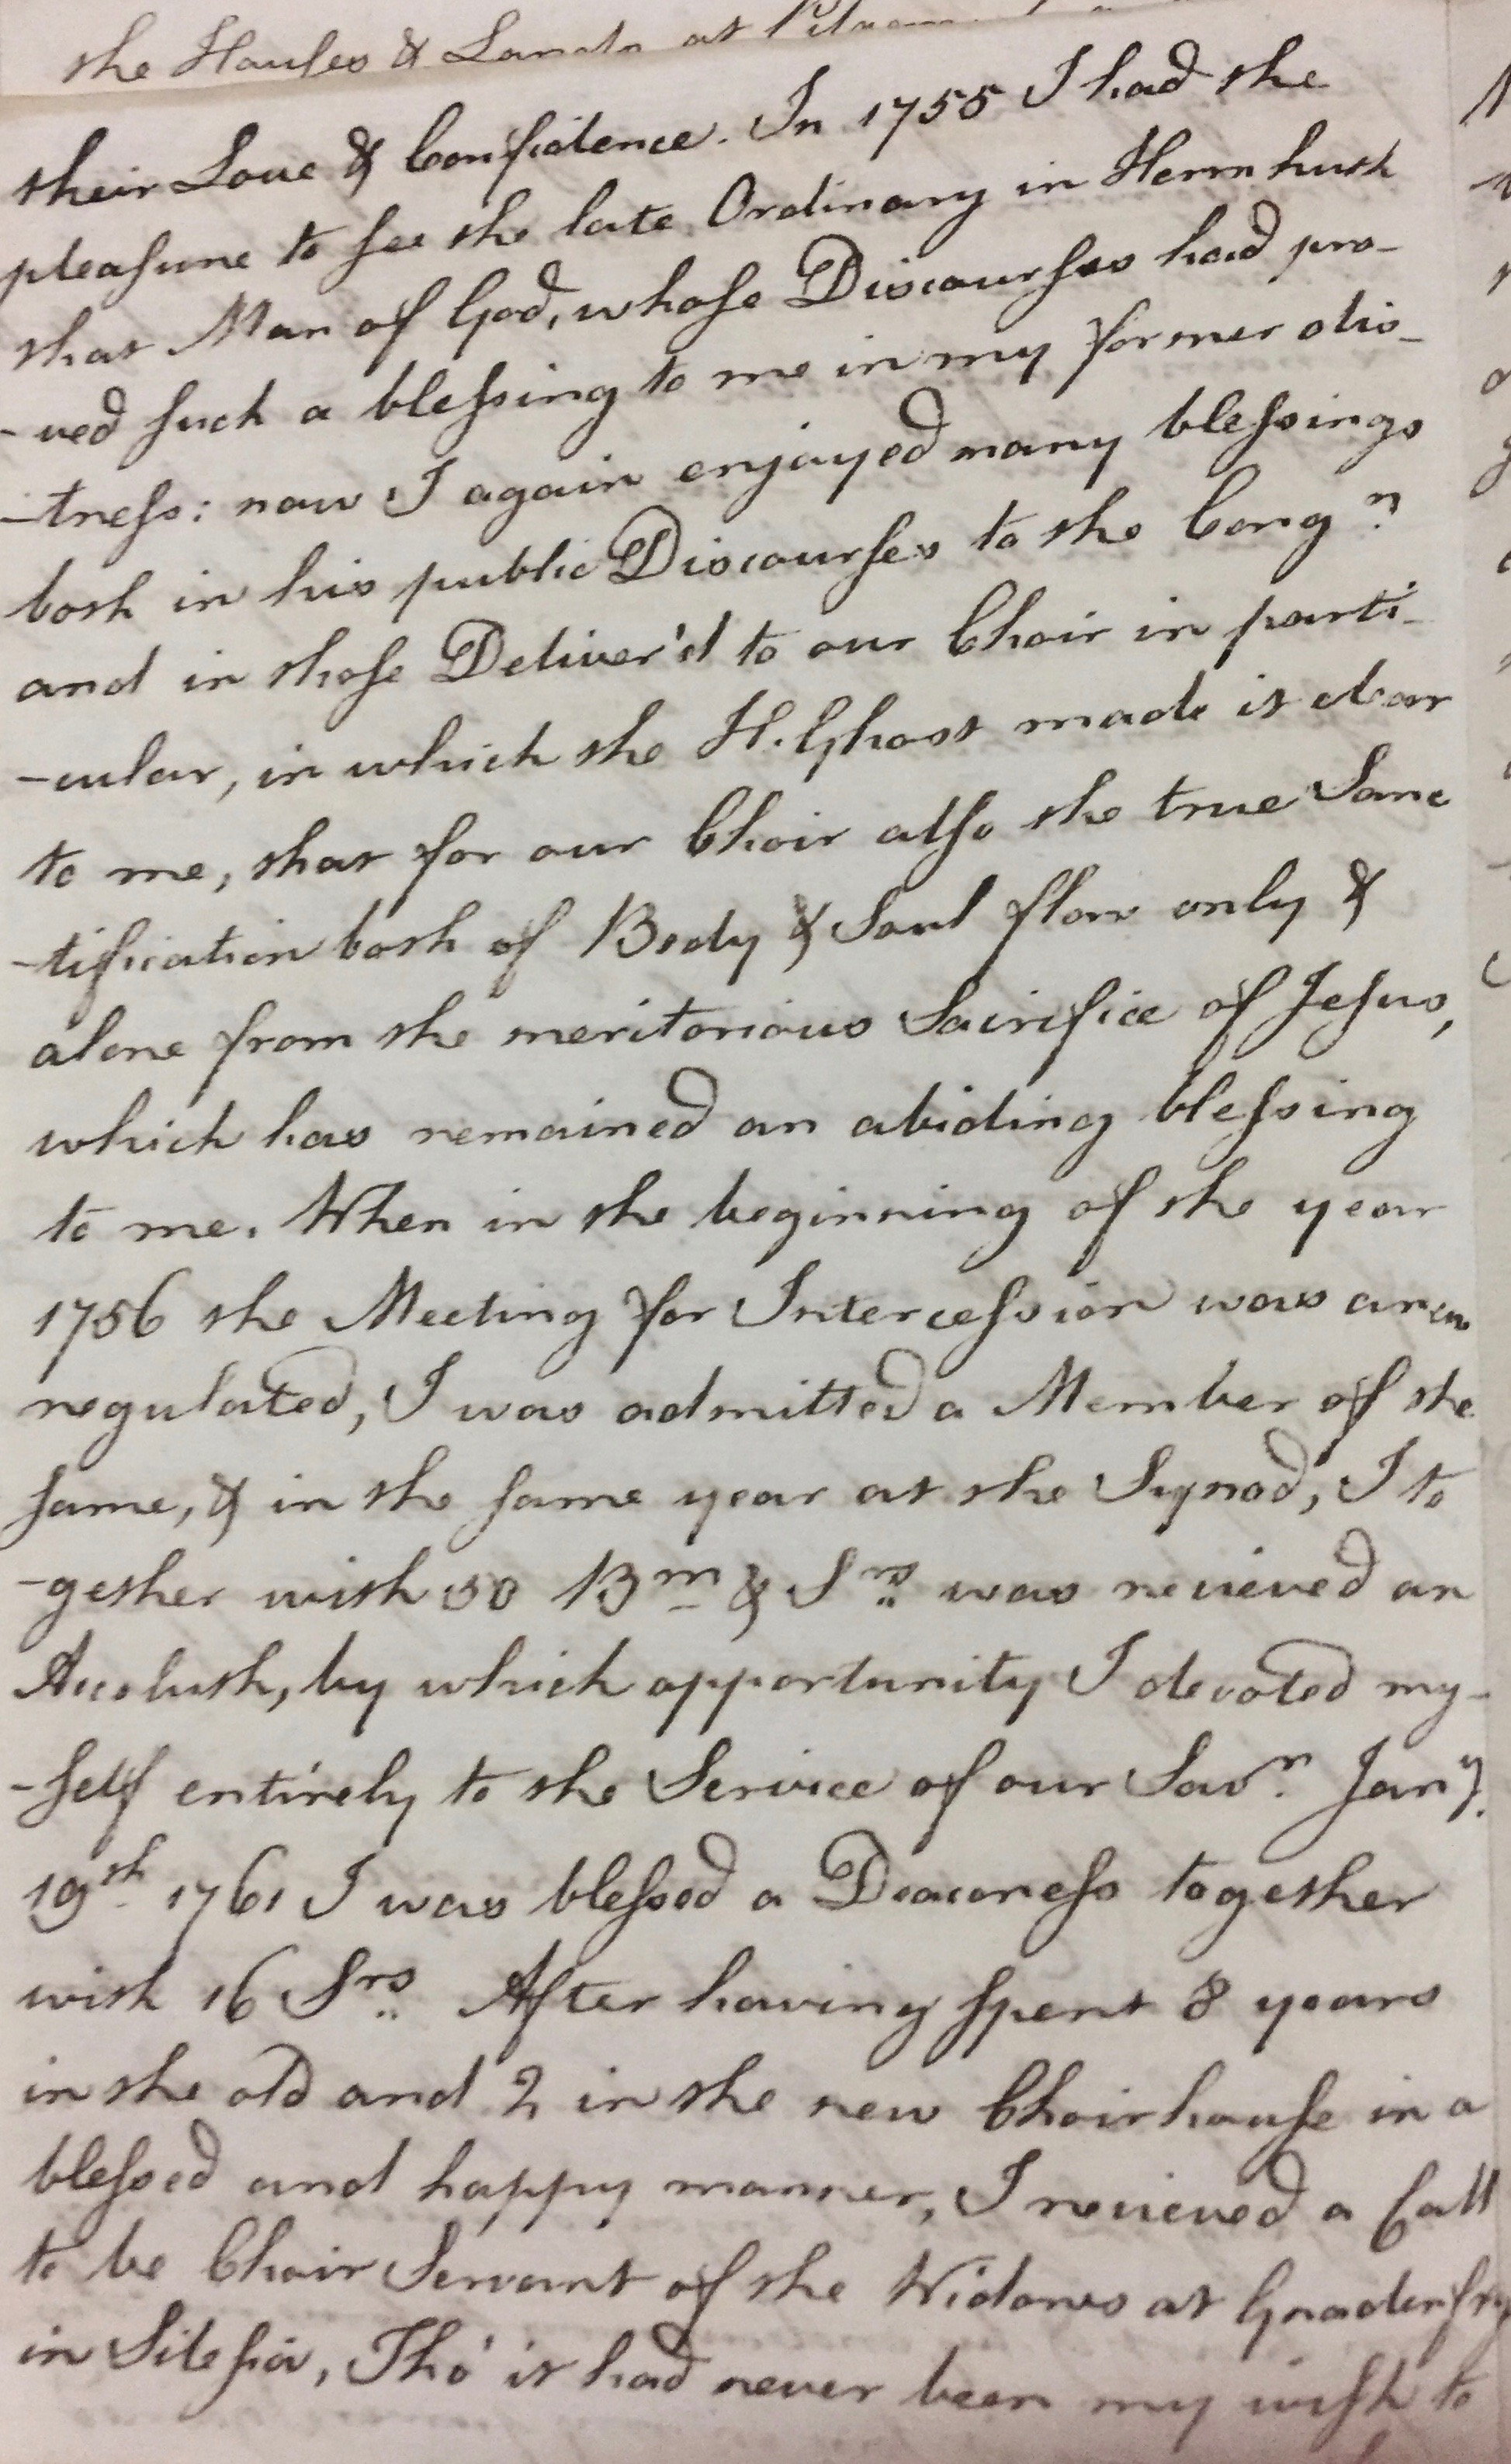 the Houses & Lands at
their Love & Confidence. In 1755 I had the
pleasure to see the late Ordinary in Herrnhuth
that Man of God, whose Discourses had pro-
-ved such a blessing to me in my former dis-
-tress: now I again enjoyed many blessings
both in his public Discourses to the Congn.
and in those Deliver'd to our Choir in parti-
-cular, in which the H. Ghost made it clear
to me, that for our Choir also the true Sanc
-tification both of Body & Soul flow only &
alone from the meritorious Sacrifice of Jesus,
which has remained an abiding blessing
to me. When in the beginning of the year
1756 the Meeting for Intercession was anew
regulated, I was admitted a Member of the
same, & in the same year at the Synod, I to
-gether with 50 Brn & Srs. was recieved an
Accoluth, by which opportunity I devoted my-
-self entirely to the Service of our Savr. Jany.
19th 1761 I was blessed a Deaconess together
with 16 Srs. After having spent 8 years
in the old and 2 in the new Choirhouse in a
blessed and happy manner, I recieved a Call
to be Choir Servant of the Widows at Gnadenfry
in Silesia, Tho' it had never been my wish to